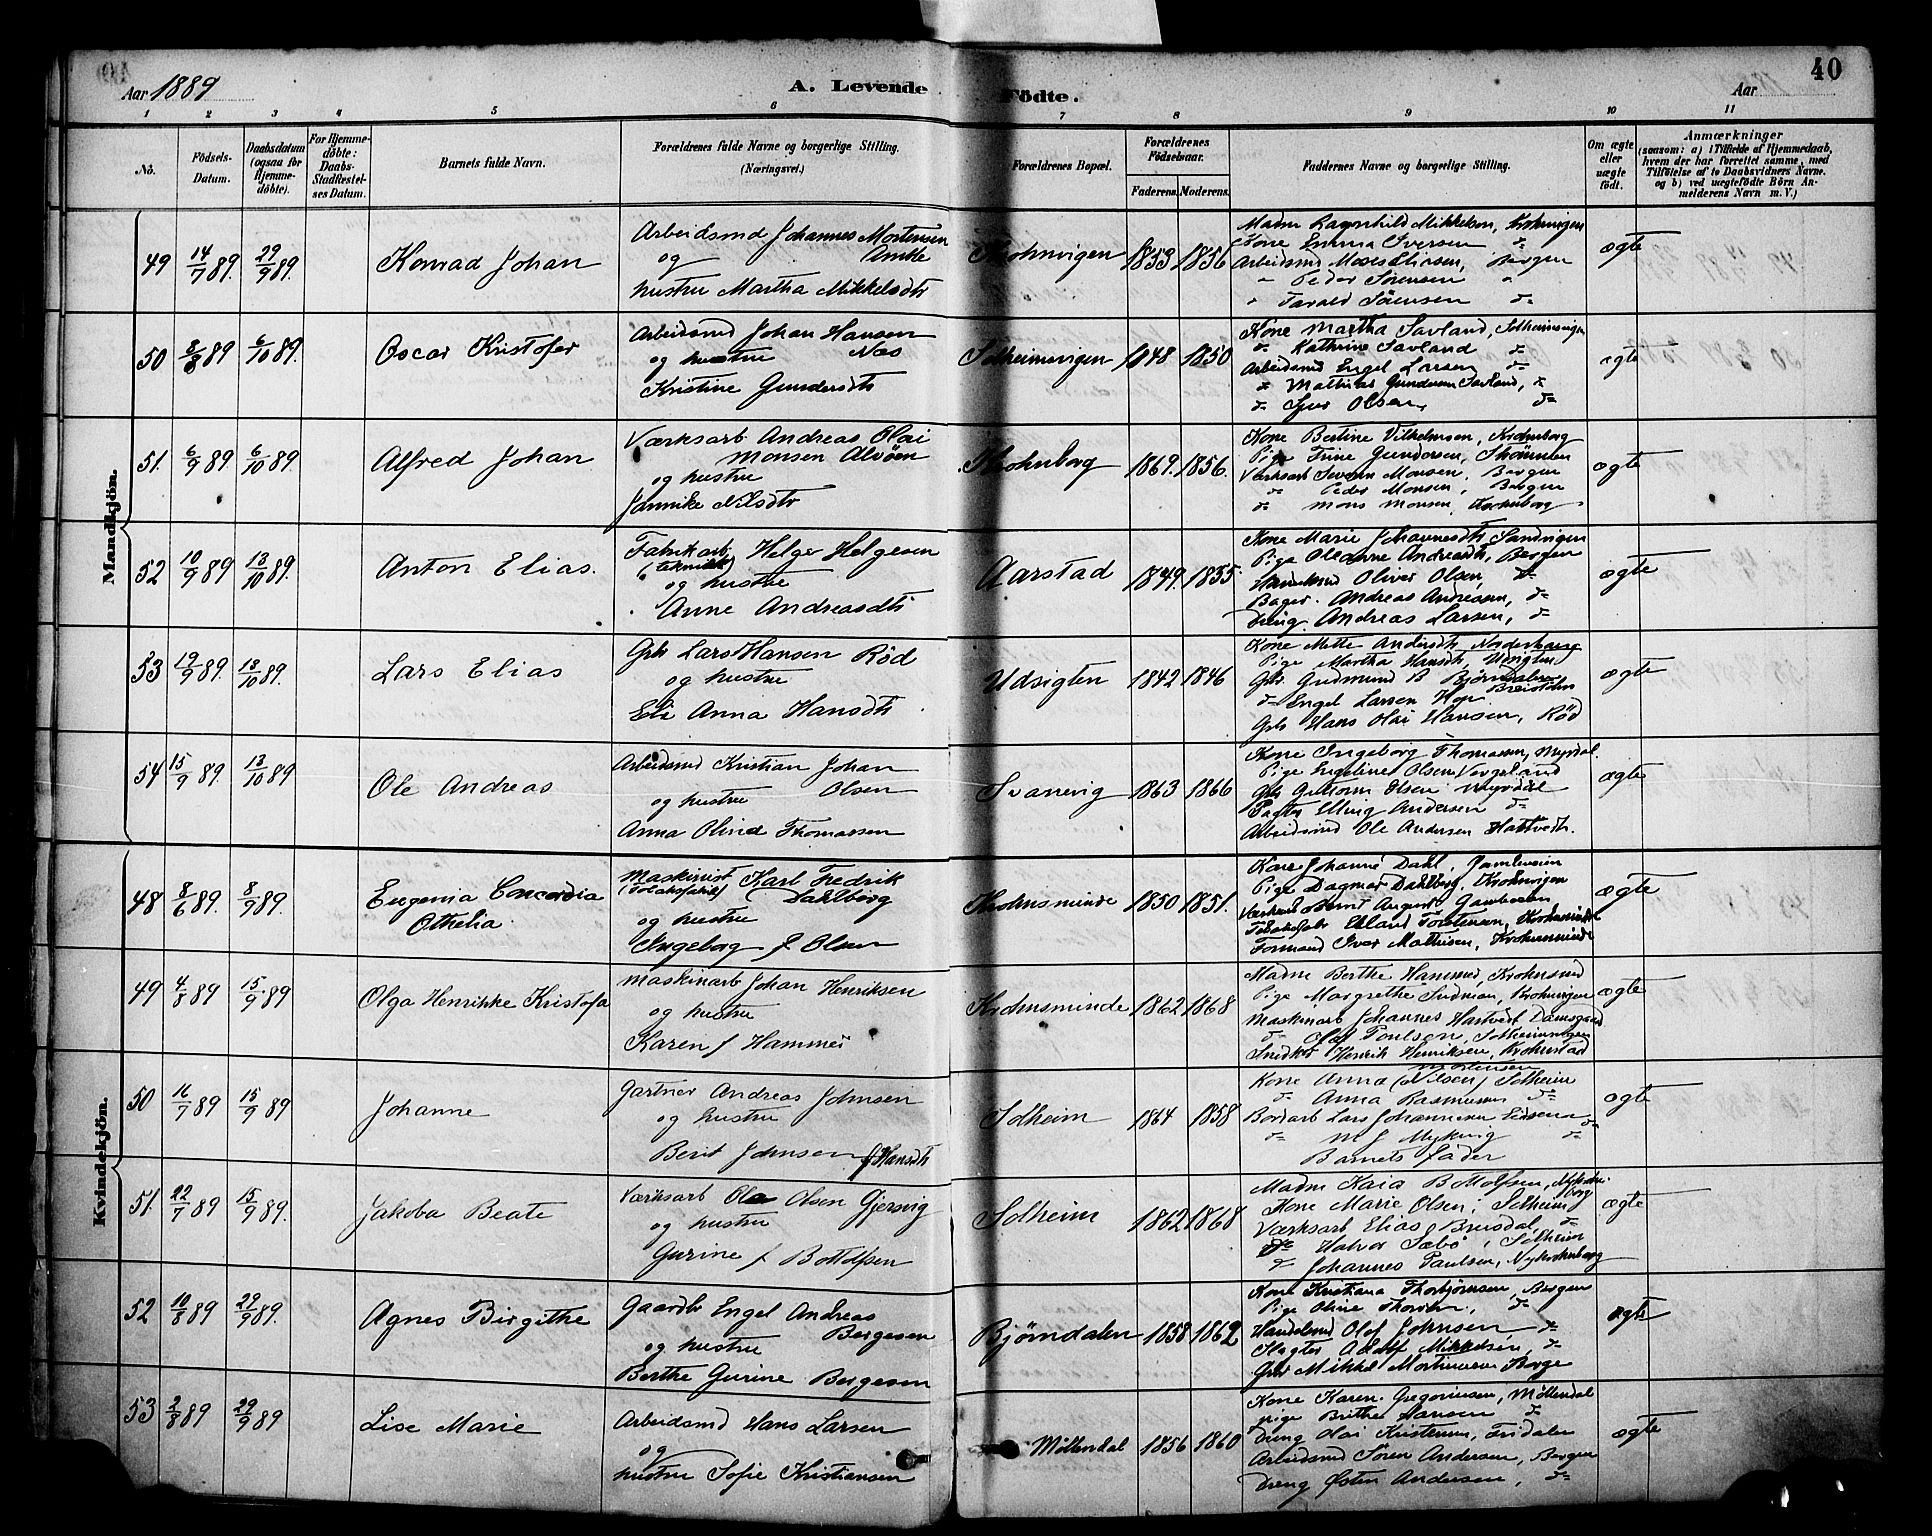 Aar 1889
A. Levende Födte.
40
Aar
1 2 3 4 5 6 7 8 9 10 11
No.
Födsels-Datum.
Daabsdatum (ogsaa for Hjemmedöbte).
For Hjemmedöbte: Daabs-Stadfæstelses Datum.
Barnets fulde Navn.
Forældrenes fulde Navne og borgerlige Stilling. (Næringsvei.)
Forældrenes Bopæl.
Forældrenes Födselsaar.
Faderens. Moderens.
Faddernes Navne og borgerlige Stilling.
Om ægte eller uægte födt.
Anmærkninger
(saasom: a) i Tilfælde af Hjemmedaab, hvem der har forrettet samme, med Tilföielse af to Daabsvidners Navne. og b) ved uægtefödte Börn Anmelderens Navn m. V.)
Mandkjön.
49 14/7 89. 29/9 89. Konrad Johan
Arbeidsmd Johannes Mortensen
og
hustru Martha Mikkelsdtr
Krohnvigen 1853 1856
Madm Ragnhild Mikkelsen, Krohnvigen
Kone Emma Iversen do
Arbeidsmd Moses Eliasen, Bergen
" Peder Sörensen "
" Tarald Sörensen do
ægte
50 8/8 89 6/10 89. Oscar Kristofer
Arbeidsmd Johan Hansen
og hustru Næs
Kristine Gundersdtr
Solheimsvigen 1848 1850
Kone Martha Savland, Solheimsvigen
do Kathrine Savland do
Arbeidsmd Engel Larsen do
do Mathias Gundersen Savland, do
do Sjur Olsen, do
ægte
51. 6/9 89. 6/10 89. Alfred Johan
Værksarb Andreas Olai
Monsen Alvöen
og hustru
Jannike Nilsdtr
Krohnborg 1869. 1856.
Kone Bertine Vilhelmsen, Krohnborg
Pige Trine Gundersen, Strömmen
Værksarb Severin Monsen, Bergen
do Peder Monsen, Bergen
do Mons Monsen, Krohnborg
ægte
52 10/9 89 13/10 89. Anton Elias.
Fabrikarb. Helge Helgesen
og hustru
Anne Andreasdtr
Aarstad 1849. 1855.
Kone Marie Johannesdtr Sandvigen
Pige Oledine Andreasdtr, Bergen
Handelsmd Oliver Olsen, do
Bager. Andreas Andreasen, do
Dreng. Andreas Larsen, do
ægte
53 19/9 89. 13/10 89. Lars Elias
Gbr Lars Hansen Röd
og hustru
Eli Anna Hansdtr
Udsigten 1842 1846
Kone Mette Andersdtr
Pige Martha Hansdtr, Udsigten
Gbr. Gudmund B Bjørndalen
do Engel Larsen Hop
Gbr Hans Olai Hansen, Röd
ægte
54 15/9 89. 13/10 89 Ole Andreas
Arbeidsmd Kristian Johan
og hustru Olsen
Anna Olind Thomassen
Svanevig 1863 1866
Kone Ingeborg Thomassen, Myrdal
Pige Engeline Olsen Vergeland
Gbr Guttorm Olsen Myrdal
Pagter Elling Andersen do
Arbeidsmd Ole Andersen Hattvedt.
ægte
Kvindekjön.
48 8/6 89. 8/9 89. Eugenia Concordia
Othelia
Maskinist Karl Fredrik
(Tobaksfabrik) Dahlberg
og hustru
Ingeborg f Olsen
Krohnsminde 1850 1851.
Kone Johanne Dahl, Damleveien
Pige Dagmar Dahlberg. Krohnvigen
Værksmd Bernt August
Tobaksfabr Erland Torstensen, Krohnsminde
Formand Iver Mathisen, Krohnsminde
ægte
49 4/8 89 15/9 89 Olga Henrikke Kristofa
Maskinarb Johan Henriksen
og hustru
Karen f Hammer
Krohnsminde 1862 1868
Madm Berthe Hammer, Krohnsmd
Pige Margrethe, Krohnvigen
Maskinarb Johannes Hartvedt Damsgaard
do Olaf Poulsen, Solheimsvigen
Snedker Henrik Henriksen, Krohnstad
ægte
50 16/7 89 15/9 89 Johanne
Gartner Andreas Johnsen
og hustru
Berit Johnsen f Hansdtr
Solheim 1864 1858
Mortensen
Kone Anna (Nilsen) Solheim
do Anna Rasmussen do
Bordarb Lars Johannessen
do M J Myking do
Barnets fader
ægte
51. 22/7 89 15/9 89. Jakoba Beate
Værksarb Ole Olsen Gjersvig
og hustru
Gurine f Bottolfsen
Solheim 1862 1868
Madm Kaia Bottolfsen, Nykrohnborg
Kone Marie Olsen, Solheim
Værksarb Elias Breisdal, do
do Halvor Sæbö, Solheim
do Johannes Paulsen, Nykrohnborg
ægte
52 10/8 89 29/9 89. Agnes Birgithe
Gaardbr Engel Andreas
Bergesen
og hustru
Berthe Gurine Bergesen
Bjørndalen 1858 1862
Kone Kristiana Thorbjørnsen, Bergen
Pige Oline Thorsen, do
Handelsmd Olaf Johnsen, do
Slagter Adolf Mikkelsen, do
Gbr Mikkel Mortensen Berge
ægte
53 2/8 89 29/9 89 Lise Marie
Arbeidsmd Hans Larsen
og
hustru Sofie Kristiansen
Möllendal 1856 1860
Kone Karen Gregoriusen, Möllendal
Pige Brithe Hansen do
Dreng Olai Kristensen, Fridalen
Arbeidsmd Sören Andersen, Bergen
Dreng Østen Andersen, do
ægte